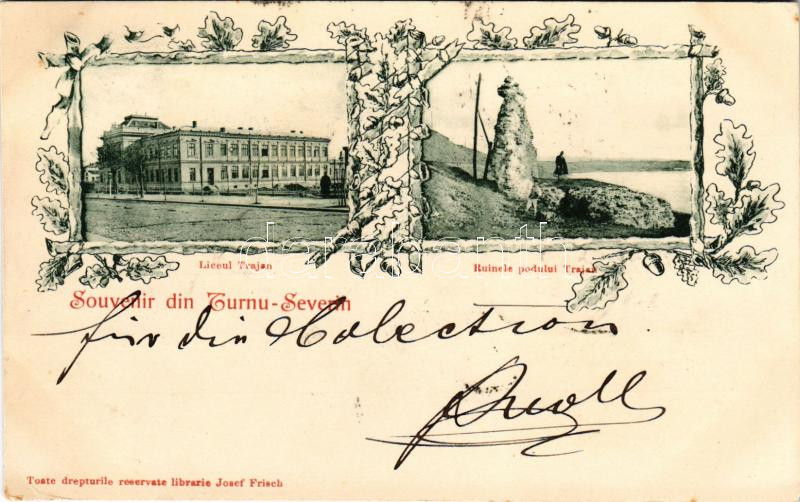 Liceul Trajan
Ruinele podului Traian
Souvenir din Turnu-Severin
für die Colection
Toate drepturile reservate librarie Josef Frisch